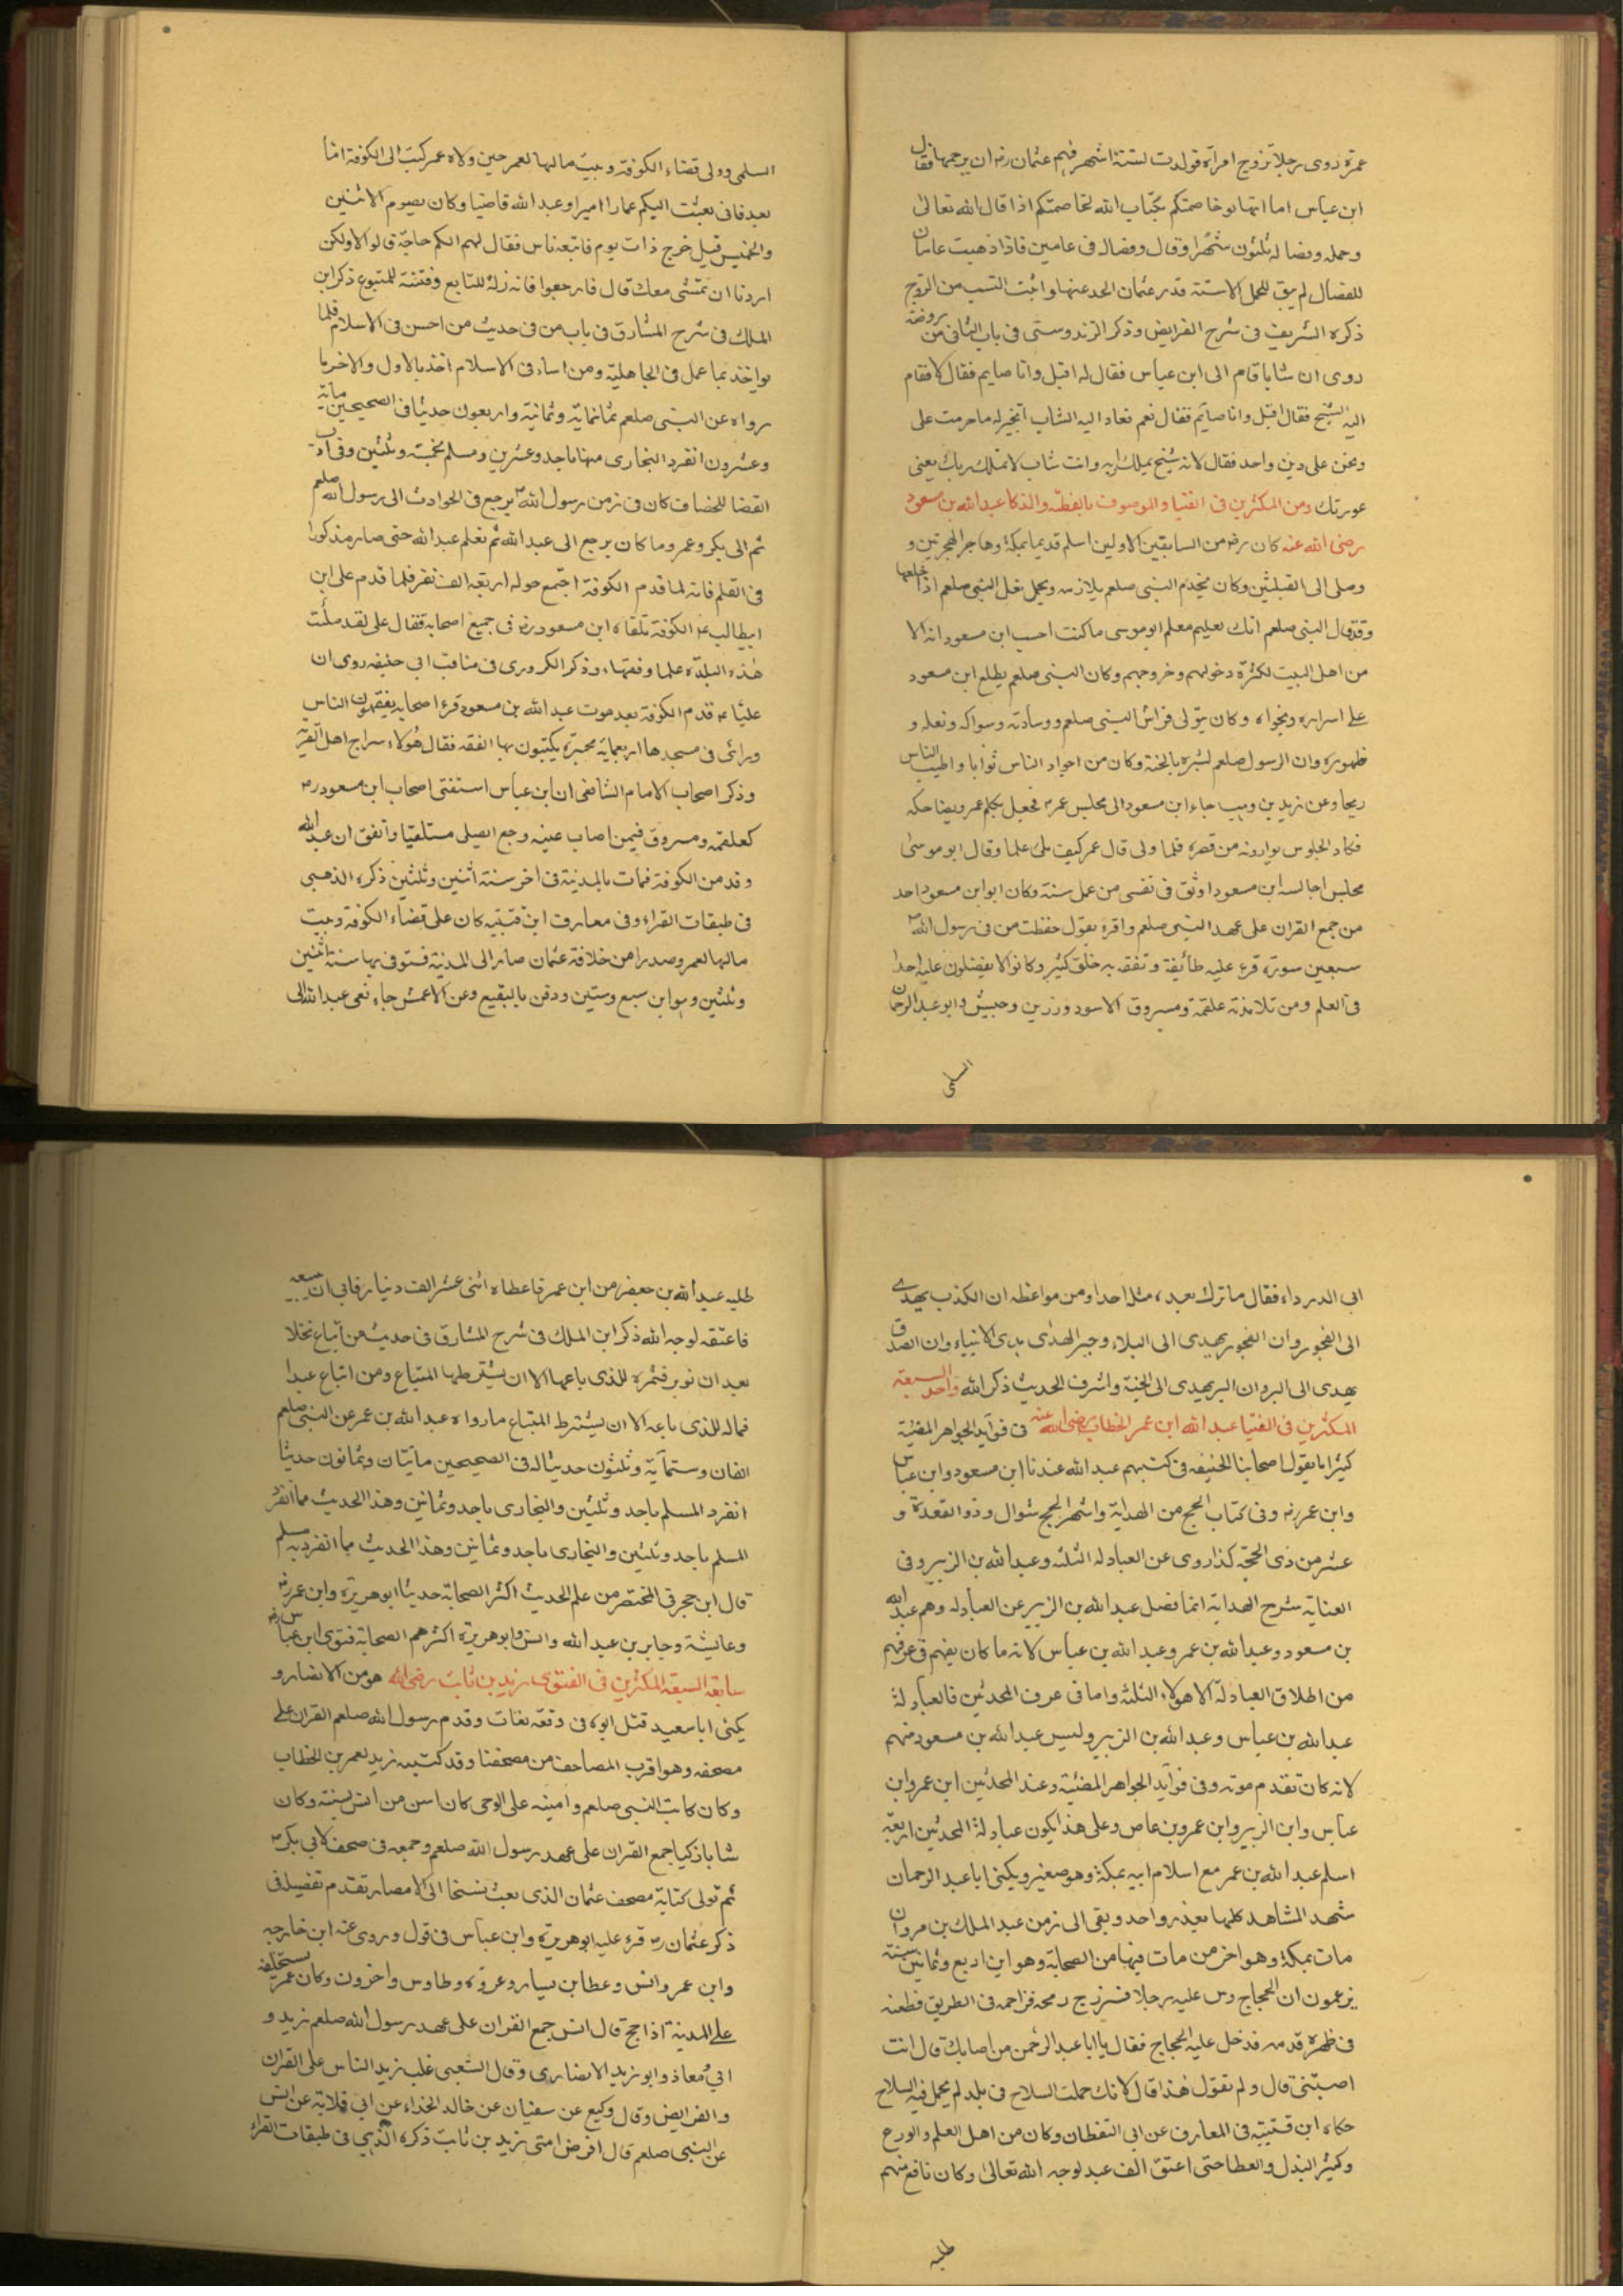 عمرة روى رجلا تزوج امرأة فولدت لستة اشهر فهم عثمان رضه ان يرجمها فقال
ابن عباس اما انها لو خاصمتكم بكتاب الله لخاصمتكم اذا قال الله تعالى
وحمله وفصاله ثلثون شهرا وقال وفصاله في عامين فاذا ذهبت عامان
للفصال لم يبق للحمل الا ستة فدرء عثمان الحد عنها واثبت النسب من الزوج
ذكره الشريف في شرح الفرايض وذكر الزندوستى في باب الثاني من روضة
روى ان شابا قام الى ابن عباس فقال له اقبل وانا صايم فقال لا فقام
اليه الشيخ فقال اقبل وانا صائم فقال نعم فعاد اليه الشاب اتخير له ما حرمت على
ونحن على دين واحد فقال لانه شيخ يملك اربه وانت شاب لا تملك ربك يعني
عورتك ومن المكثرين في الفتيا والموصوف بالفطنة والذكا عبد الله بن مسعود
رضى الله عنه كان رضه من السابقين الاولين اسلم قديما بمكة وهاجر الهجرتين و
وصلى الى القبلتين وكان يخدم النبي صلعم يلازمه ويحمل نعل النبي صلعم اذا خلعها
وقد قال النبي صلعم انك لعليم معلم ابو موسى ما كنت احسب ابن مسعود انه الا
من اهل البيت لكثرة دخولهم وخروجهم وكان النبي صلعم يطلع ابن مسعود
على اسراره ونجواه وكان يتولى فراش النبي صلعم ووسادته وسواكه ونعله و
طهوره وان الرسول صلعم بشره بالجنة وكان من اجواد الناس ثوابا واطيب الناس
ريحا وعن زيد بن وهب جاء ابن مسعود الى مجلس عمر فجعل يكلم عمر ويضاحكه
فكاد الجلوس يوارونه من قصره فلما ولى قال عمر كيف ملئ علما وقال ابو موسى
مجلس اجالسه ابن مسعود اوثق في نفسي من عمل سنة وكان ابو ابن مسعود احد
من جمع القران على عهد النبي صلعم واقره يقول حفظت من في رسول الله
سبعين سورة قرء عليه طائفة وتفقه به خلق كثير وكانوا لا يفضلون عليه احدا
في العلم ومن تلامذته علقمة ومسروق الاسود وزرين وحبيش وابو عبد الرحمان
السلمى
السلمى وولى قضاء الكوفة وبيت مالها لعمر حين ولاه عمر كتب الى الكوفة اما
بعد فاني بعثت اليكم عمارا اميرا وعبد الله قاضيا وكان يصوم الاثنين
والخميس قيل خرج ذات يوم فاتبعه ناس فقال لهم الكم حاجة قالوا لا ولكن
اردنا ان نمشى معك قال فارجعوا فانه زلة للتابع وفتنة للمتبوع ذكر ابن
الملك في شرح المشارق في باب من في حديث من احسن في الاسلام فلما
يواخذ بما عمل في الجاهلية ومن اساء في الاسلام اخذ بالاول والاخر ما
رواه عن النبي صلعم ثمانماية وثمانية واربعون حديثا في الصحيحين ماية
وعشرون انفرد البخارى منها باحد وعشرين ومسلم بخمسة وثلثين وفي ادب
القضا للخصاف كان في زمن رسول الله يرجع في الحوادث الى رسول الله صلعم
ثم الى بكر وعمر وما كان يرجع الى عبد الله ثم تعلم عبد الله حتى صار مذكورا
في العلم فانه لما قدم الكوفة اجتمع حوله اربعة الف نفر فلما قدم على ابن
ابيطالب الكوفة تلقاه ابن مسعود رضه في جميع اصحابه فقال على لقد ملئت
هذه البلدة علما وفقها وذكر الكردرى في مناقب ابي حنيفه روى ان
عليا قدم الكوفة بعد موت عبد الله بن مسعود قرء اصحابه يفقهون الناس
وراى في مسجدها اربعماية محبرة يكتبون بها الفقه فقال هؤلاء سراج اهل القرية
وذكر اصحاب الامام الشافعى ان ابن عباس استفتى اصحاب ابن مسعود
كعلقمه ومسروق فيمن اصاب عينه وجع ايصلى مستلقيا واتفق ان عبد الله
وفد من الكوفة فمات بالمدينة في اخر سنة اثنين وثلثين ذكره الذهبى
في طبقات القراء وفي معارف ابن قتيبه كان على قضاء الكوفة وبيت
مالها لعمر وصدرا من خلافة عثمان صار الى المدينة فتوفي بها سنة اثنين
وثلثين وهو ابن سبع وستين ودفن بالبقيع وعن الاعمش جاء نعى عبد الله الى
ابى الدرداء فقال ما ترك بعده مثله احدا ومن مواعظه ان الكذب يهدى
الى الفجور وان الفجور يهدى الى البلاء وخير الهدى هدى الانبياء وان الصدق
يهدى الى البر وان البر يهدى الى الجنة واشرف الحديث ذكر الله واحد السبعة
المكثرين في الفتيا عبد الله ابن عمر الخطاب رضى الله عنه في فوائد الجواهر المضيئة
كثيرا ما يقول اصحابنا الحنيفه في كتبهم عبد الله عندنا ابن مسعود وابن عباس
وابن عمر رضه وفي كتاب الحج من الهداية واشهر الحج شوال وذو القعدة و
عشر من ذى الحجة كذا روى عن العبادلة الثلثة وعبد الله بن الزبير وفي
العناية شرح الهداية انما فضل عبد الله بن الزبير عن العبادله وهم عبد الله
بن مسعود وعبد الله بن عمر وعبد الله بن عباس لانه ما كان يفهم في عرفهم
من اطلاق العبادلة الا هولاء الثلثة واما في عرف المحدثين فالعبادلة
عبد الله بن عباس وعبد الله بن الزبير وليس عبد الله بن مسعود منهم
لانه كان تقدم موته وفي فوائد الجواهر المضيئة وعند المحدثين ابن عمر وابن
عباس وابن الزبير وابن عمرو بن عاص وعلى هذا يكون عبادلة المحدثين اربعة
اسلم عبد الله بن عمر مع اسلام ابيه بمكة وهو صغير ويكنى ابا عبد الرحمان
شهد المشاهد كلها بعد بدر واحد وبقى الى زمن عبد الملك بن مروان
مات بمكة وهو اخر من مات فيها من الصحابة وهو ابن اربع وثمانين سنة
يزعمون ان الحجاج دس عليه رجلا فسم زج رمحه فزاحمه في الطريق فطعنه
في ظهر قدمه فدخل عليه الحجاج فقال يا ابا عبد الرحمن من اصابك قال انت
اصبتنى قال ولم تقول هذا قال لانك حملت السلاح في بلد لم يحمل فيه السلاح
حكاه ابن قتيبة في المعارف عن ابى اليقظان وكان من اهل العلم والورع
وكثير البذل والعطا حتى اعتق الف عبد لوجه الله تعالى وكان نافع منهم
طلبه
طلبه عبد الله بن جعفر من ابن عمر فاعطاه اثنى عشر الف دينار فابى ان يبيعه
فاعتقه لوجه الله ذكر ابن الملك في شرح المشارق في حديث من اتباع نخلا
بعد ان توبر فثمره للذى باعها الا ان يشترطها المتباع ومن اتباع عبدا
فماله للذى باعه الا ان يشترط المبتاع ما رواه عبد الله بن عمر عن النبي صلعم
الفان وستماية وثلثون حديثا له في الصحيحين مايتان وثمانون حديثا
انفرد المسلم باحد وثلثين والبخارى باحد وثمانين وهذا الحديث مما انفرد
المسلم باحد وثلثين والبخارى باحد وثمانين وهذا الحديث مما انفرد به مسلم
قال ابن حجر في المختصر من علم الحديث اكثر الصحابة حديثا ابو هريرة وابن عمر
وعايشة وجابر بن عبد الله وانس وابو هريرة اكثرهم الصحابة فتوى ابن عباس رضه
سابعة السبعة المكثرين في الفتوى زيد بن ثابت رضى الله هو من الانصار و
يكنى ابا سعيد قتل ابوه في وقعة بغاث وقدم رسول الله صلعم القران على
مصحفه وهو اقرب المصاحف من مصحفنا وقد كتب زيد لعمر بن الخطاب
وكان كاتب النبي صلعم وامينه على الوحى كان اسن من انس بسنة وكان
شابا ذكيا جمع القران على عهد رسول الله صلعم وجمعه في صحف لابي بكر
ثم تولى كتابة مصحف عثمان الذى بعث نسخا الى الامصار تقدم تفصيله في
ذكر عثمان قرء عليه ابو هريرة وابن عباس في قول وروى عنه ابن خارجه
وابن عمر وانس وعطا بن يسار وعروه وطاوس واخرون وكان عمر يستخلفه
على المدينة اذا حج قال انس جمع القران على عهد رسول الله صلعم زيد و
ابي ومعاذ وابو زيد الانصارى وقال الشعبى غلب زيد الناس على القران
والفرايض وقال وكيع عن سفيان عن خالد الحذاء عن ابي قلابة عن انس
عن النبي صلعم قال افرض امتى زيد بن ثابت ذكره الذهبي في طبقات القراء